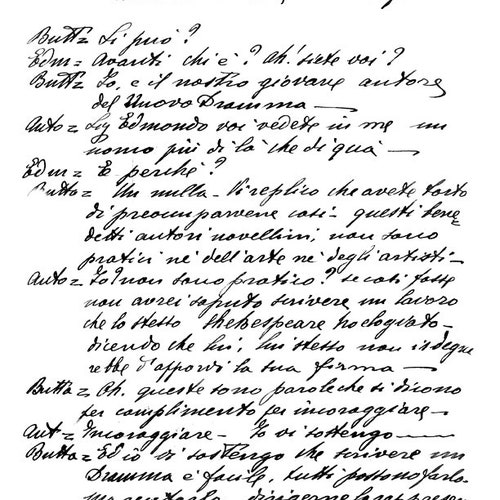 Butt= Si può?
Edm= Avanti chi è? Ah! siete voi?
Butt= Io, e il nostro giovane autore
del Nuovo Dramma—
Auto= Sig Edmondo voi vedete in me un
uomo più di là che di quà—
Edm= E perché?
Butta= Un nulla- Vi replico che avete torto
di preoccuparvene così- questi bene=
detti autori novellini, non sono
pratici nè dell'arte nè degli artisti-
Auto= Io? non sono pratico? se così fosse
non avrei saputo scrivere un lavoro
che lo stesso Shekespeare
dicendo che lui, lui stesso non isdegne
rebbe d'apporvi la sua firma—
Butta= Oh. queste sono parole che si dicono
per complimento per incoraggiare—
Aut= Incoraggiare- Io vi sostengo—
Butta= Ed io vi sostengo che scrivere un
Dramma è facile, tutti possono farlo-